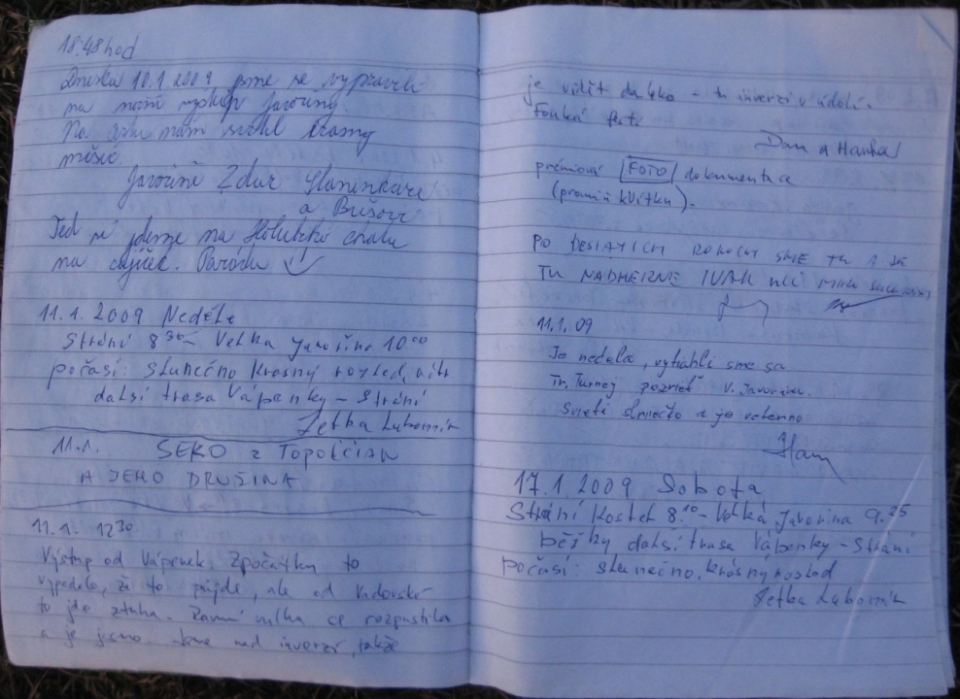 18.48 hod
Dneska 10.1 2009 jsme se vypravili
na noční výstup Javořiny.
Na cestu nám svítil krásný
měsíc.
Javořině Zdar
a
Teď jdeme na Holubího chatu
na čajíček. Paráda
11.1.2009 Neděle
Strání 8 30 – Velká Javořina 10 00
počasí: slunečno krásný rozhled, vítr
další trasa Vápenky – Strání
Petka Lubomír
11.1. SEKO z Topolčian
A JEHO DRUŽINA
11.1. 12 30
Výstup od Vápenek. Zpočátku to
vypadalo, že to půjde, ale od
to jde ztuha. Ranní mlha se rozpustila
a je jasno. Jsme nad inverzí, takže
je vidět daleko – tu inverzi v údolí.
Fouká fest.
Dan a Hanka
prémiová FOTO dokumentace
(promiň kvítku).
PO DESIATICH ROKOCH SME TU A JE
TU NÁDHERNE IVAN
11.1.09
Je nedeľa, vytiahli sme sa
Tr. Turnej pozrieť V. Javorinu.
Svieti slniečko a je veterno
17.1.2009 Sobota
Strání Kostel 8.10 – Velká Javorina 9.25
běžky další trasa Vápenky – Strání
počasí: slunečno, krásný rozhled
Petka Lubomír